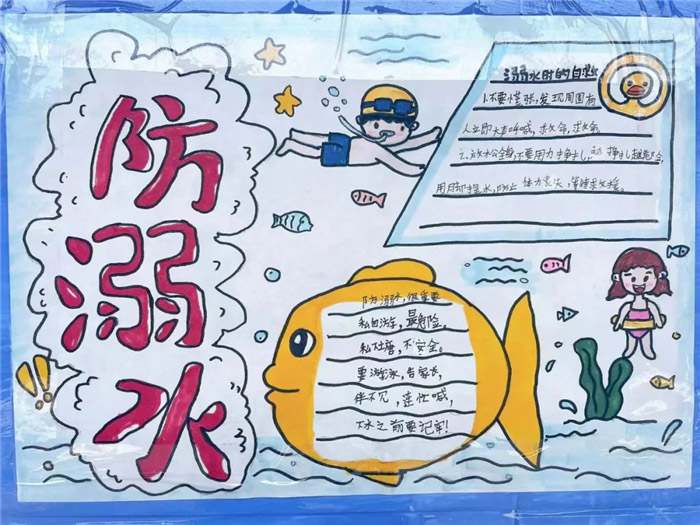 防溺水
溺水时的自救
1.不要慌张,发现周围有
人立即大声呼喊,救命,求救
2.放松全身,不要用力挣扎,
用脚踩水,防止体力丧失,等待救援。
防溺水,很重要
私自游,最危险,
私塘,不安全。
要游泳,告家长,
伴不见,连忙喊,
下水之前要记牢!